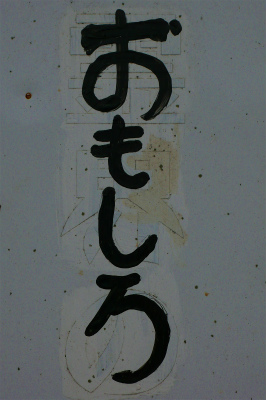 おもしろ